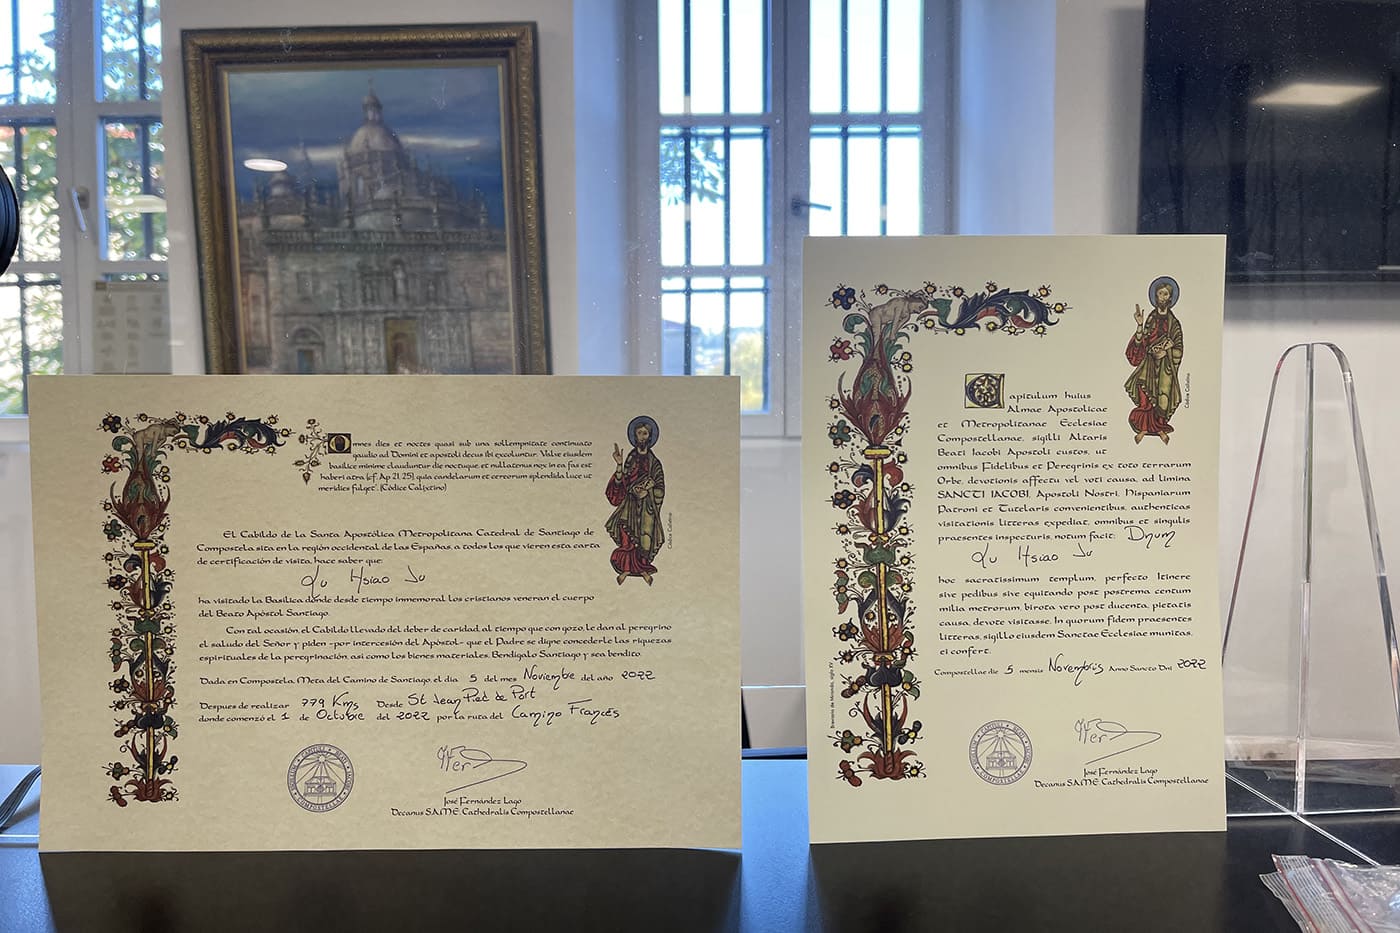 Omnes dies et noctes quasi sub una sollempnitate continuato
gaudio ad Domini et apostoli decus ibi excoluntur. Valve eiusdem
basilice minime clauduntur die noctuque, et nullatenus nox in ea fas est
haberi atra [cf. Ap 21, 25] quia candelarum et cereorum splendida luce ut
meridies fulget". (Códice Calixtino)
El Cabildo de la Santa Apostólica Metropolitana Catedral de Santiago de
Compostela sita en la región occidental de las Españas, a todos los que vieren esta carta
de certificación de visita, hace saber que:
Lu Hsiao Ju
ha visitado la Basílica donde desde tiempo inmemorial los cristianos veneran el cuerpo
del Beato Apóstol Santiago.
Con tal ocasión, el Cabildo llevado del deber de caridad, al tiempo que con gozo, le dan al peregrino
el saludo del Señor y piden -por intercesión del Apóstol- que el Padre se digne concederle las riquezas
espirituales de la peregrinación, así como los bienes materiales. Bendígalo Santiago y sea bendito.
Dada en Compostela, Meta del Camino de Santiago, el día 5 del mes Noviembre del año 2022
Despues de realizar 779 Kms Desde St Jean Pied de Port
donde comenzó el 1 de Octubre del 2022 por la ruta del Camino Francés
José Fernández Lago
Decanus S.A.M.E. Cathedralis Compostellanae
Códice Calixtino
Capitulum huius
Almae Apostolicae
et Metropolitanae Ecclesiae
Compostellanae, sigilli Altaris
Beati Iacobi Apostoli custos, ut
omnibus Fidelibus et Peregrinis ex toto terrarum
Orbe, devotionis affectu vel voti causa, ad limina
SANCTI IACOBI, Apostoli Nostri, Hispaniarum
Patroni et Tutelaris convenientibus, authenticas
visitationis litteras expediat, omnibus et singulis
praesentes inspecturis, notum facit: Dnum
Lu Hsiao Ju
hoc sacratissimum templum, perfecto Itinere
sive pedibus sive equitando post postrema centum
milia metrorum, birota vero post ducenta, pietatis
causa, devote visitasse. In quorum fidem praesentes
litteras, sigillo eiusdem Sanctae Ecclesiae munitas,
ei confert.
Compostellae die 5 mensis Novembris Anno Sancto Dni 2022
José Fernández Lago
Decanus S.A.M.E. Cathedralis Compostellanae
Códice Calixtino
Breviario de Miranda, siglo XV